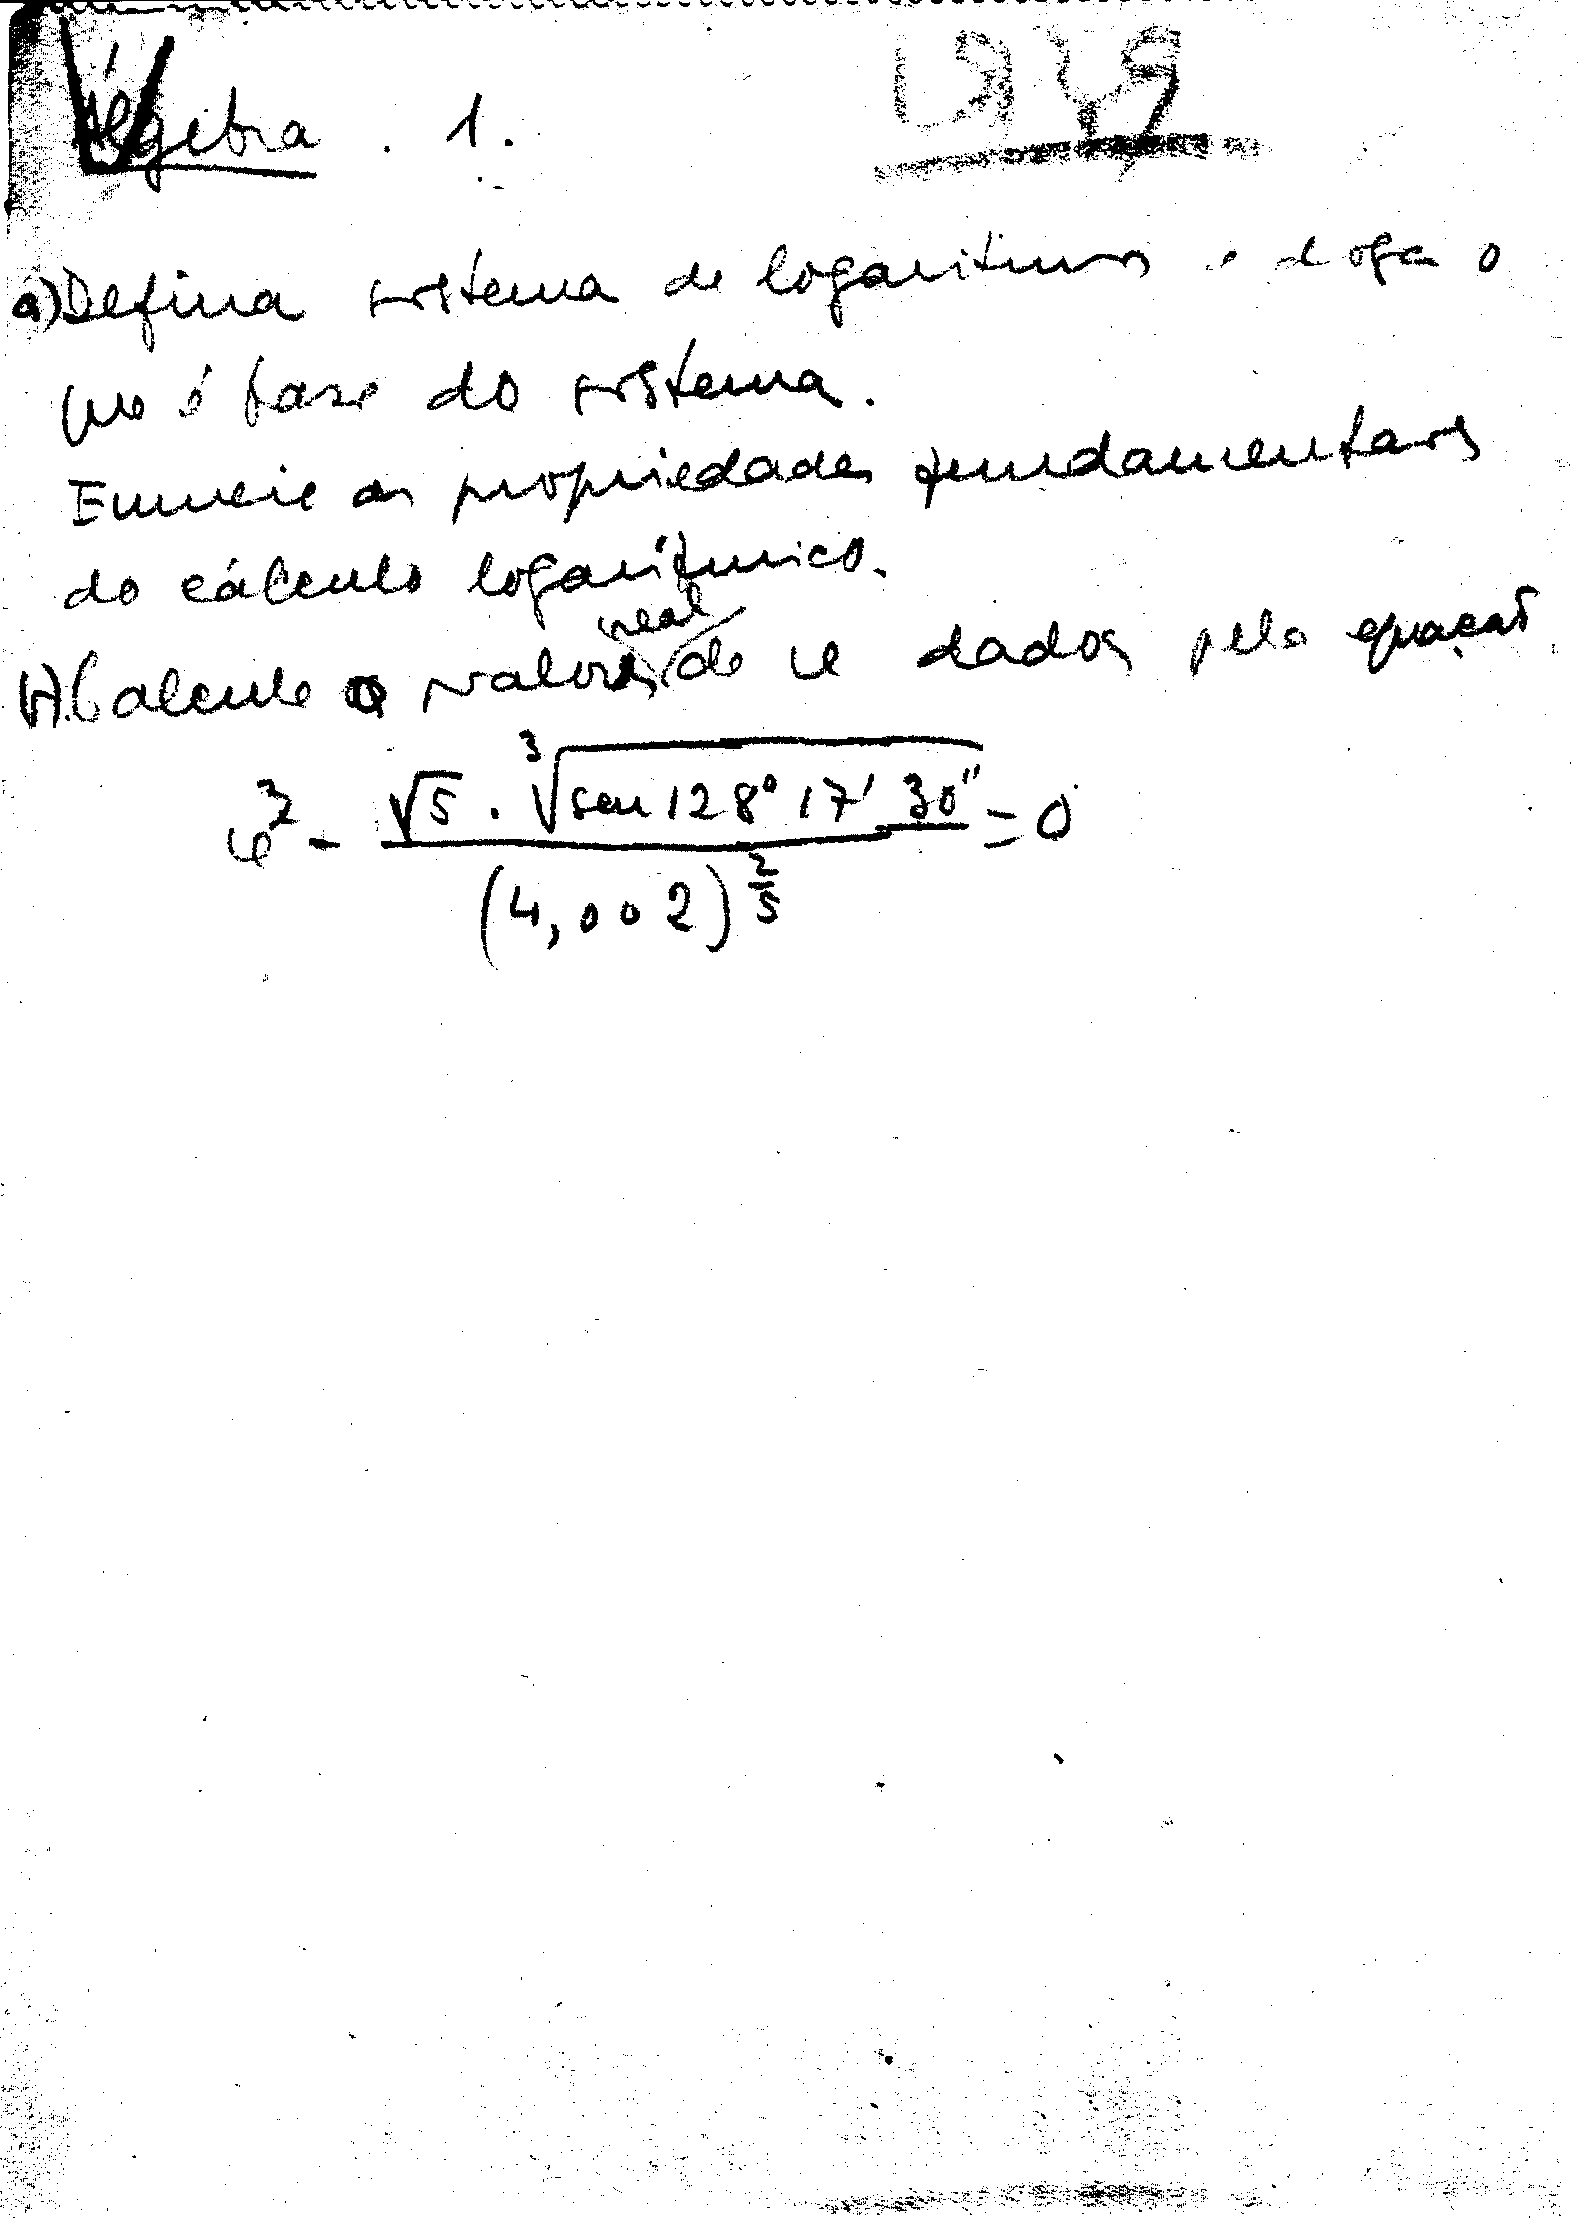 Álgebra . 1.
a) Defina sistema de logaritmos e diga o
que é base do sistema.
Enuncie as propriedades fundamentais
do cálculo logarítmico.
real
b) Calcule o valor de u dados pela equação
u³ - √5 . ³√sen 128° 17' 30" = 0
(4,002)^2/5